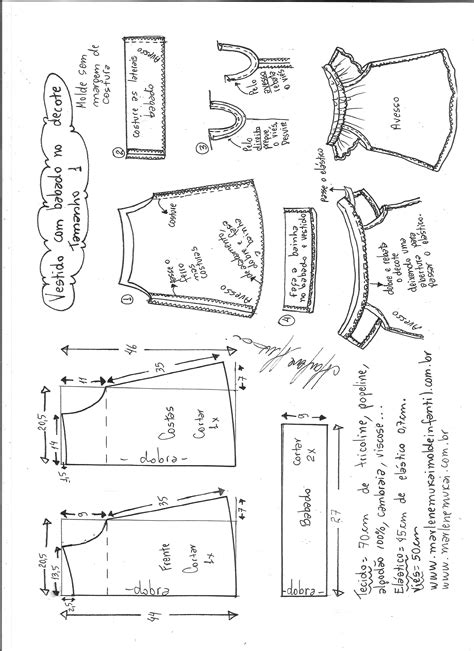 Vestido com babado no decote
Tamanho 1
Molde sem
margem de
costura
1
costure
passe o
ferro
nas
costuras
Avesso
2
Costure as laterais
babado
Avesso
3
Pelo
direito
prove
o viés.
Desvire
Pelo
avesso
rebata
o viés
4
Faça a bainha
no babado e vestido
passe o elástico
dobre e rebata
o decote
deixando uma
abertura para
passar o elástico.
Avesso
Avesso
46
35
11
20,5
14
1,5
7
Costas
Cortar
1x
dobra
44
35
9
20,5
13,5
2,5
7
Frente
Cortar
1x
dobra
9
27
Babado
Cortar
2x
dobra
Tecido = 70cm de tricoline, popeline,
algodão 100%, cambraia, viscose...
Elástico = 45cm de elástico 0,7cm.
Viés = 50cm
www.marlenemukaimoldeinfantil.com.br
www.marlenemukai.com.br